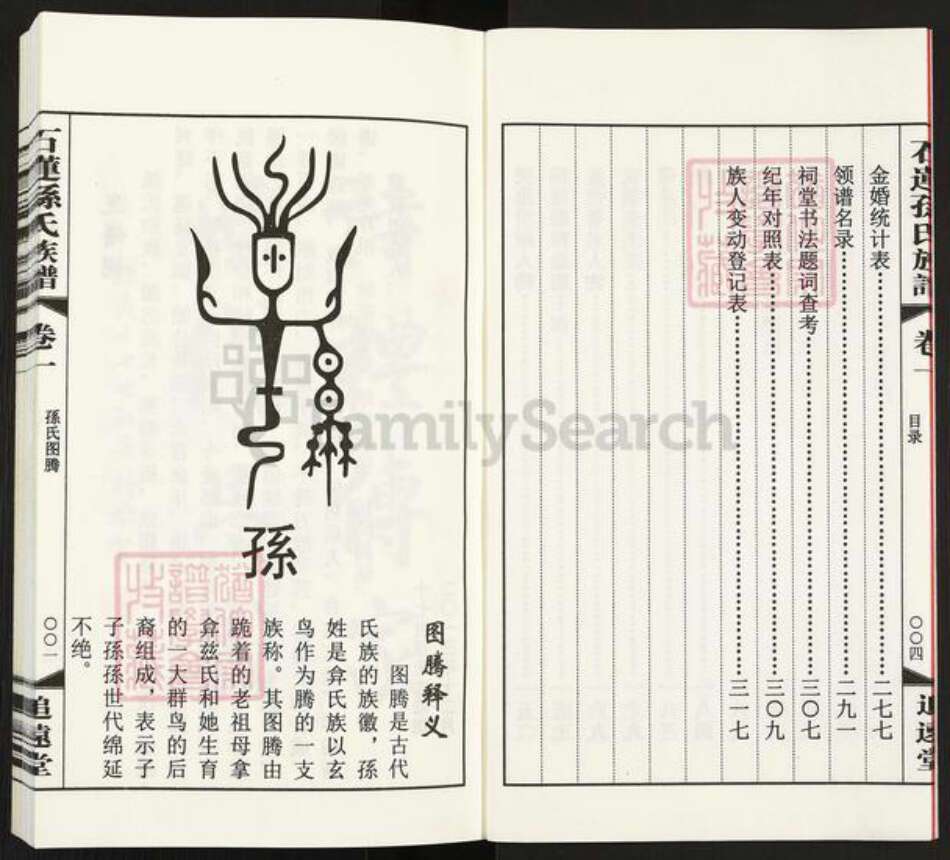 金婚统计表……二七七
领谱名录……二九一
祠堂书法题词查考……三〇七
纪年对照表……三〇九
族人变动登记表……三一七
卷一
目录
〇〇四
追远堂
孫
图腾释义
图腾是古代
氏族的族徽，孫
姓是弇氏族以玄
鸟作为腾的一支
族称。其图腾由
跪着的老祖母拿
弇兹氏和她生育
的一大群鸟的后
裔组成，表示子
子孫孫世代绵延
不绝。
孫氏族譜
卷一
孫氏图腾
〇〇一
追遠堂
FamilySearch